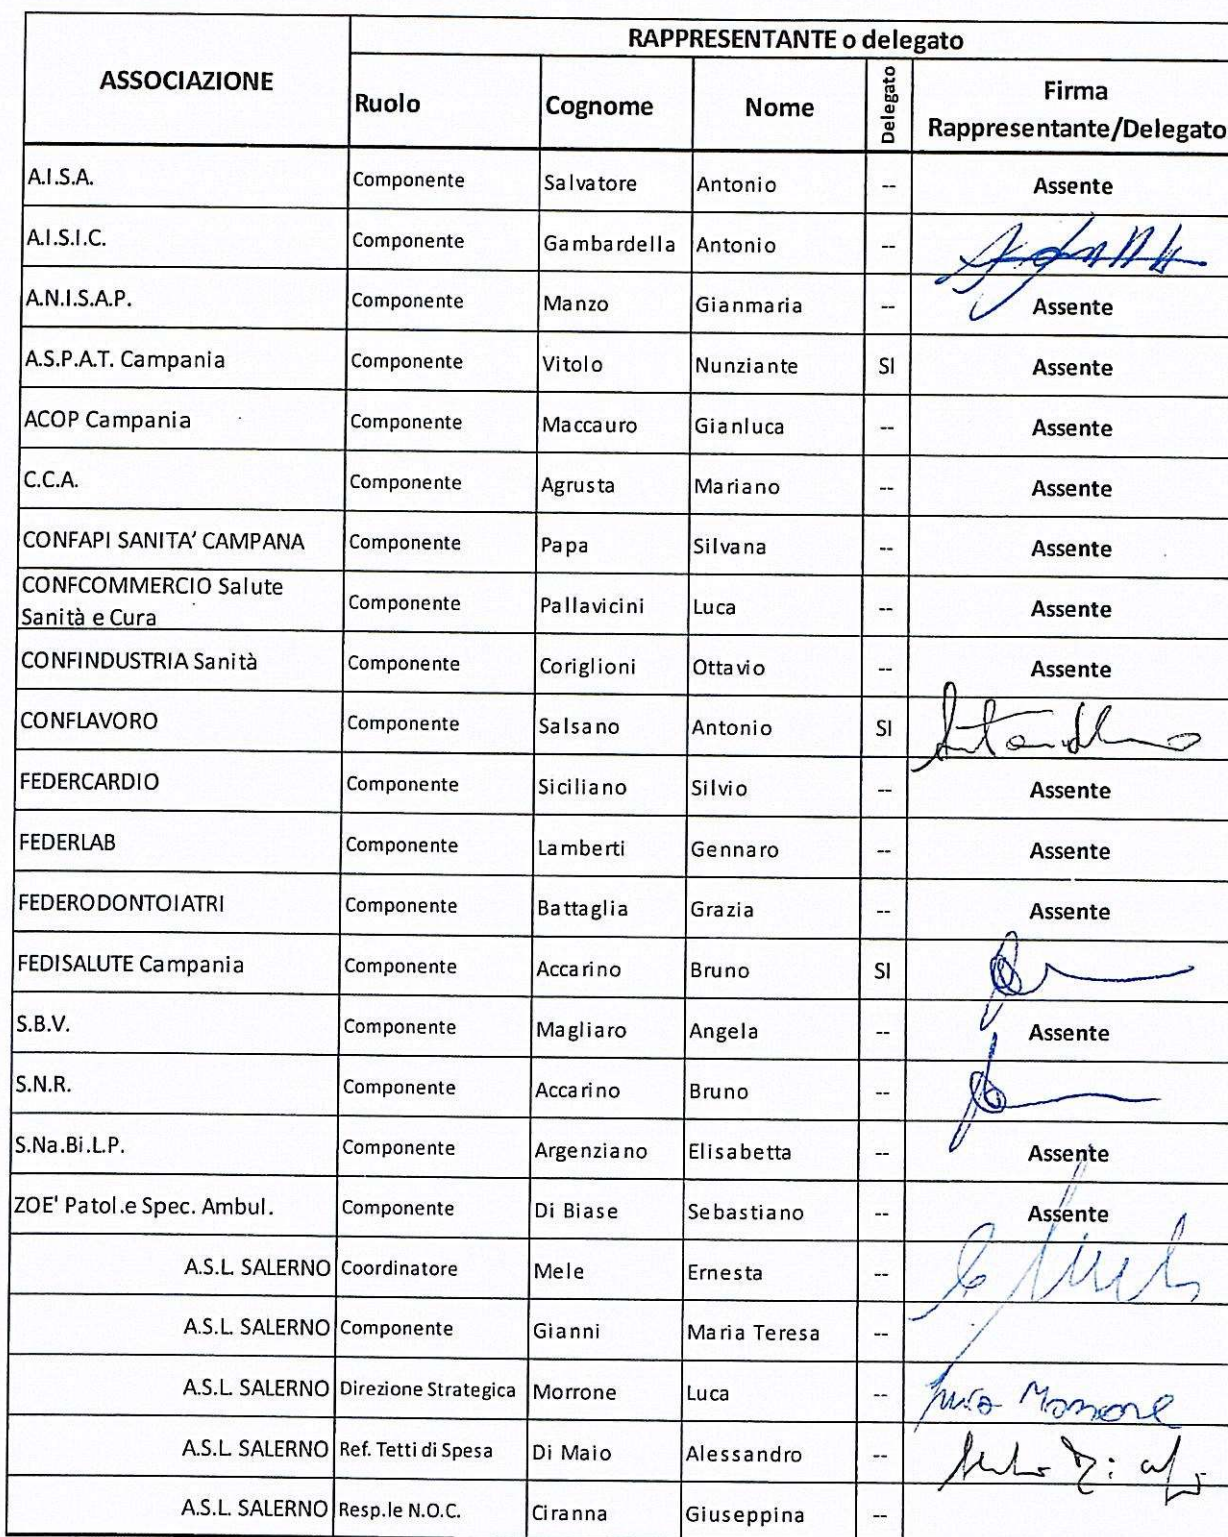 RAPPRESENTANTE o delegato
ASSOCIAZIONE Ruolo Cognome Nome Delegato Firma Rappresentante/Delegato
A.I.S.A. Componente Salvatore Antonio -- Assente
A.I.S.I.C. Componente Gambardella Antonio --
A.N.I.S.A.P. Componente Manzo Gianmaria -- Assente
A.S.P.A.T. Campania Componente Vitolo Nunziante SI Assente
ACOP Campania Componente Maccauro Gianluca -- Assente
C.C.A. Componente Agrusta Mariano -- Assente
CONFAPI SANITA' CAMPANA Componente Papa Silvana -- Assente
CONFCOMMERCIO Salute
Sanità e Cura Componente Pallavicini Luca -- Assente
CONFINDUSTRIA Sanità Componente Coriglioni Ottavio -- Assente
CONFLAVORO Componente Salsano Antonio SI
FEDERCARDIO Componente Siciliano Silvio -- Assente
FEDERLAB Componente Lamberti Gennaro -- Assente
FEDERODONTOIATRI Componente Battaglia Grazia -- Assente
FEDISALUTE Campania Componente Accarino Bruno SI
S.B.V. Componente Magliaro Angela -- Assente
S.N.R. Componente Accarino Bruno --
S.Na.Bi.L.P. Componente Argenziano Elisabetta -- Assente
ZOE' Patol.e Spec. Ambul. Componente Di Biase Sebastiano -- Assente
A.S.L. SALERNO Coordinatore Mele Ernesta --
A.S.L. SALERNO Componente Gianni Maria Teresa --
A.S.L. SALERNO Direzione Strategica Morrone Luca -- Luca Morrone
A.S.L. SALERNO Ref. Tetti di Spesa Di Maio Alessandro --
A.S.L. SALERNO Resp.le N.O.C. Ciranna Giuseppina --